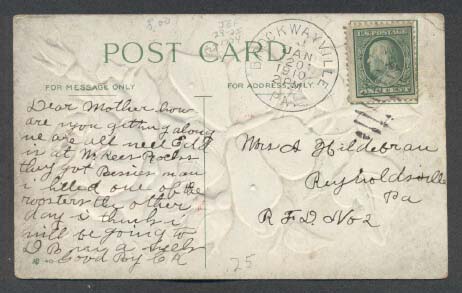 8.00
POST CARD
BROCKWAYVILLE
JAN
20
1910
2 PM
PA.
U.S. POSTAGE
ONE CENT
FOR MESSAGE ONLY
FOR ADDRESS ONLY
Dear Mother how
are you getting along
we are all well Edd
is at McKees Rocks
they got Bessies man
i killed one of the
roosters the other
day i think i
will be going to
Good By
Mrs A Hildebran
Reynoldsville
Pa
R F D No 2
25